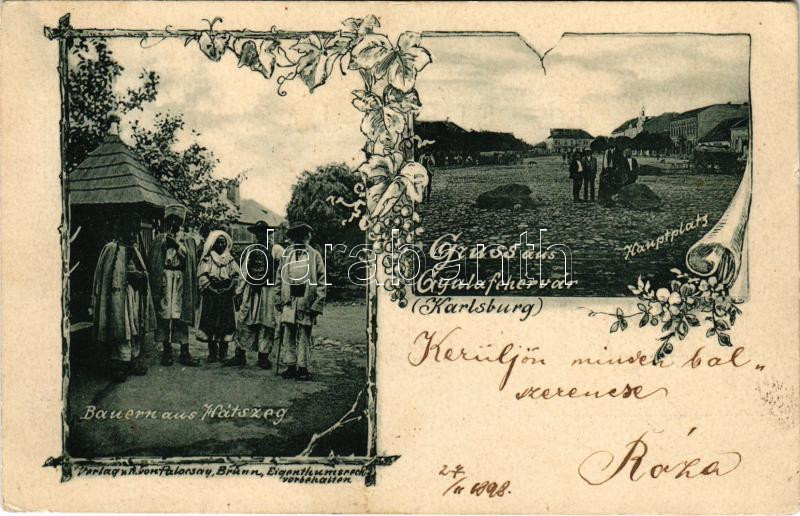 Gruss aus
Gyulafehérvár
(Karlsburg)
Hauptplatz
darabanth
Bauern aus Hátszeg
Verlag v. A. von Palocsay, Brünn, Eigenthumsrech
vorbehalten
Kerüljön minden bal„
szerencse
Róza
27/II 1898.